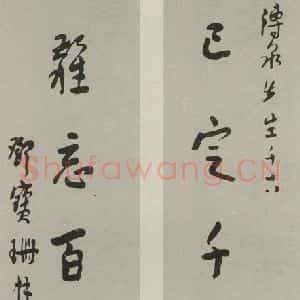 溥泉先生
已定千
難忘百
鄧寶珊
Shufawang.CN